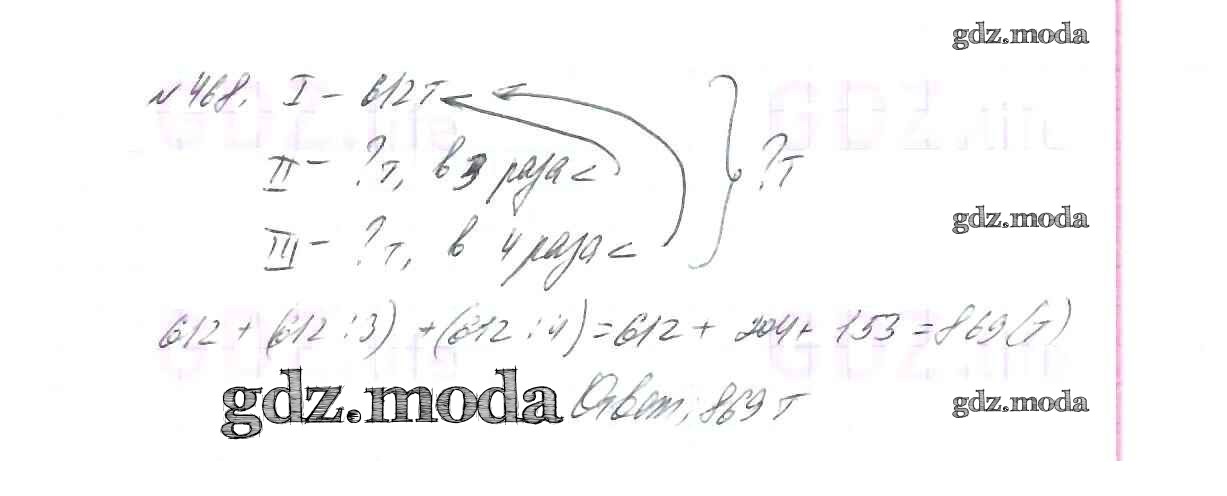 gdz.moda
№468. I – 612 т
II – ? т, в 3 раза <
} ? т
gdz.moda
III – ? т, в 4 раза <
612 + (612 : 3) + (612 : 4) = 612 + 204 + 153 = 869 (т)
gdz.moda
Ответ: 869 т
gdz.moda